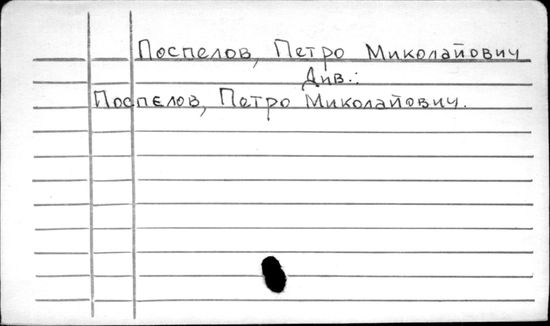 Поспелов, Петро Миколайович
Див.:
Поспєлов, Петро Миколайович.